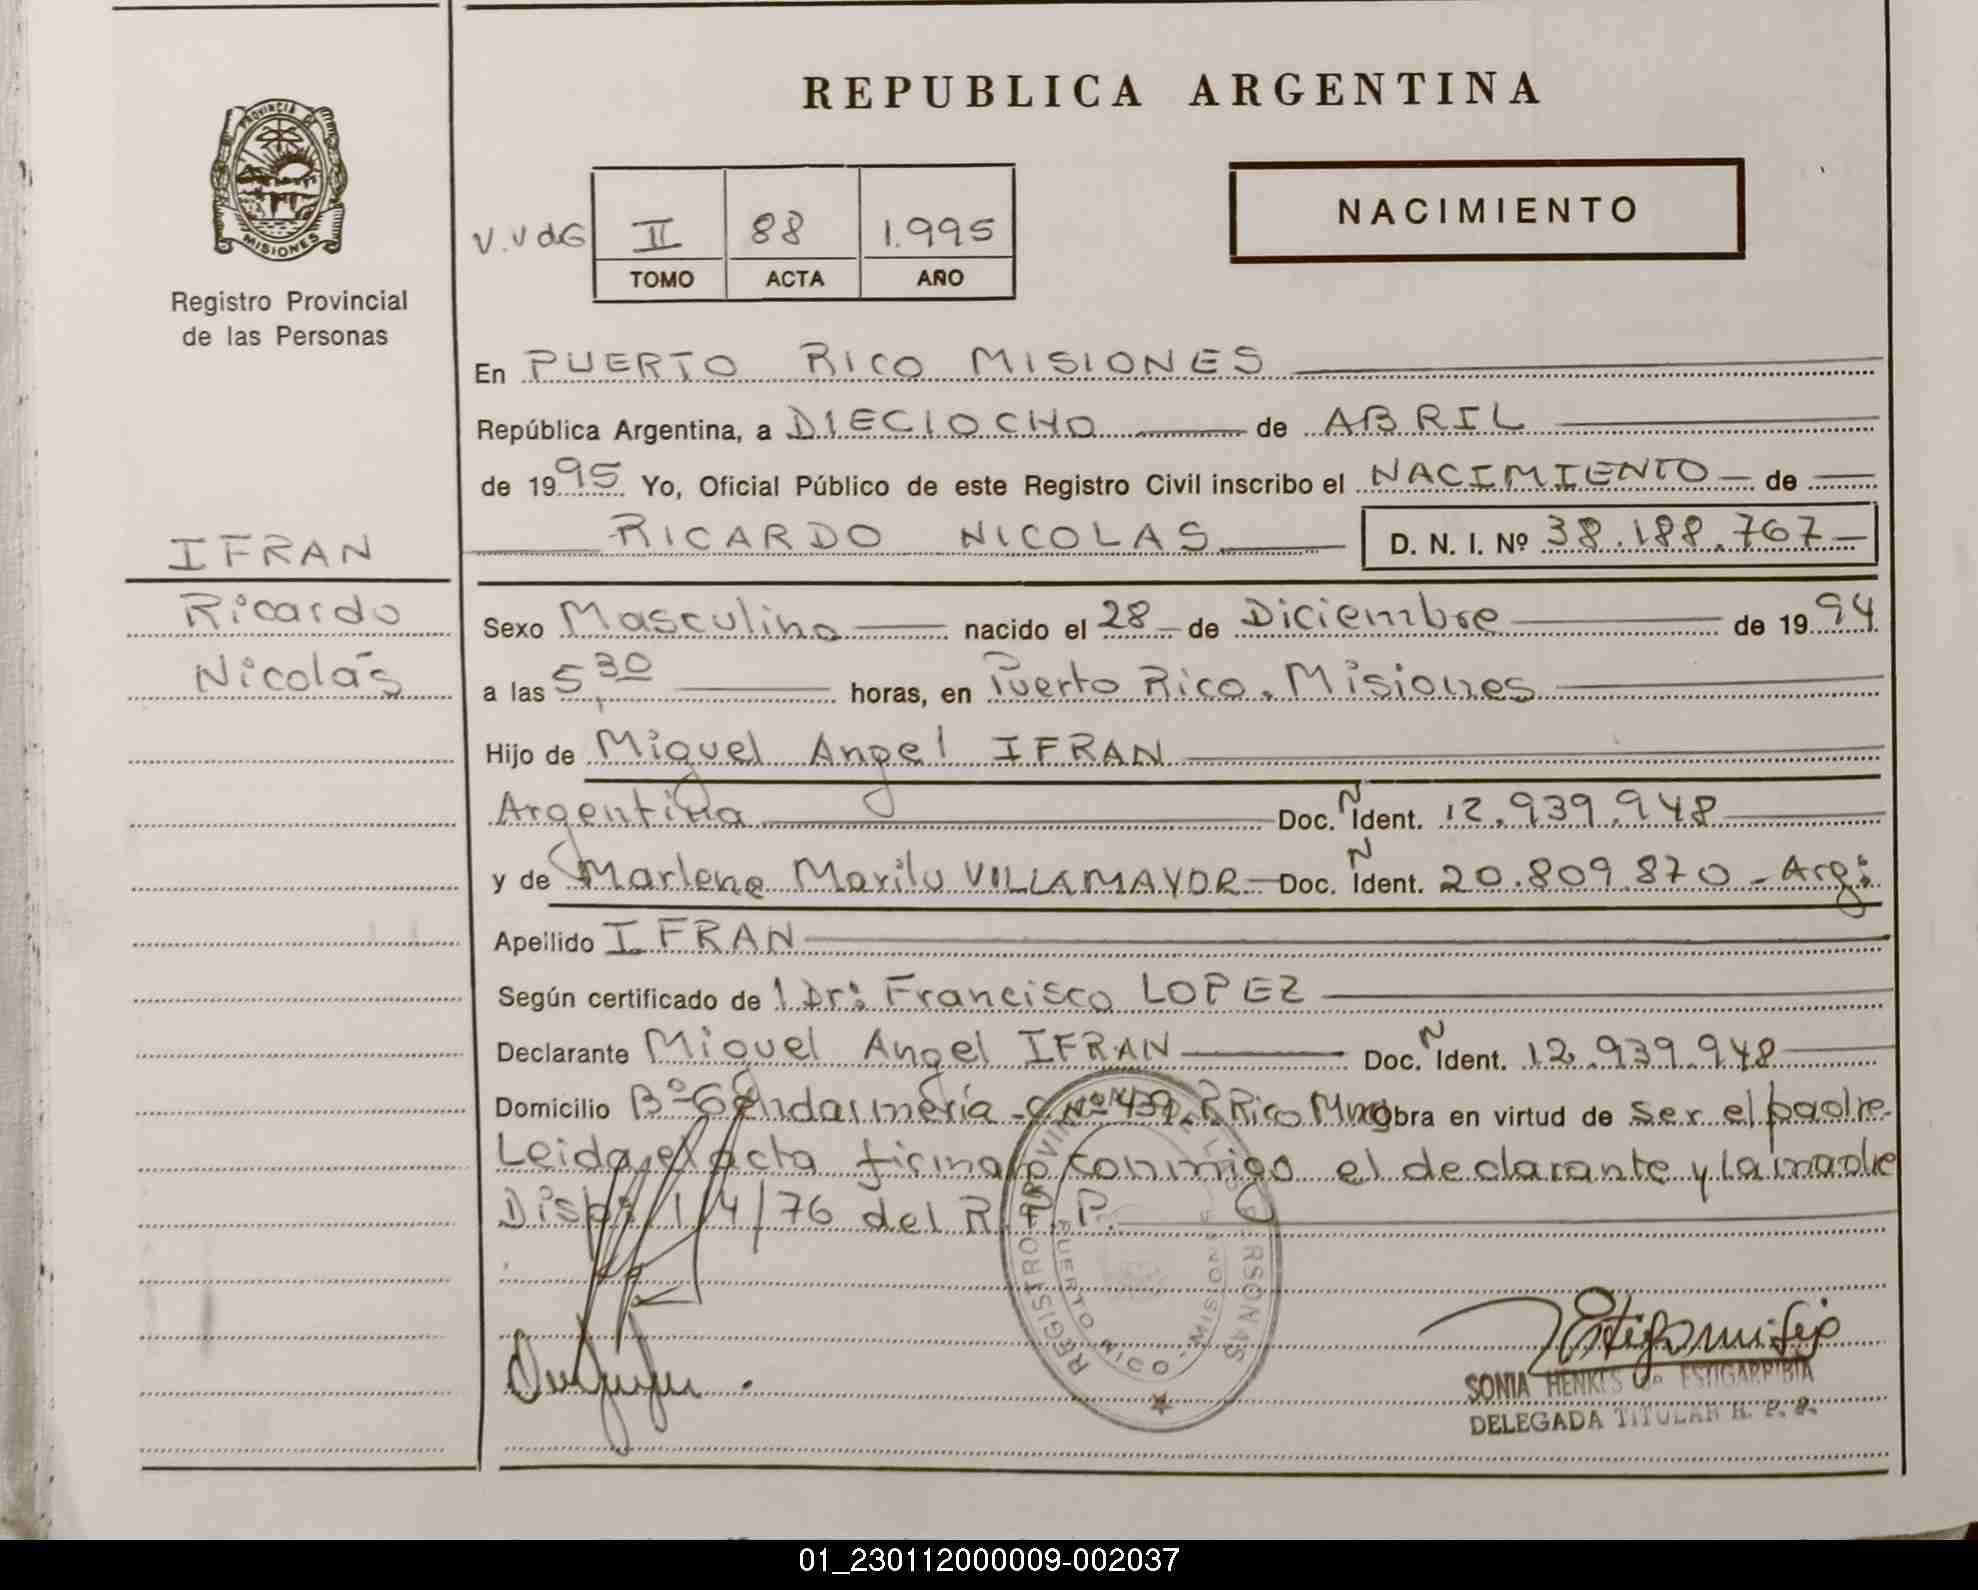 REPUBLICA ARGENTINA
PROVINCIA DE
MISIONES
Registro Provincial
de las Personas
NACIMIENTO
V.V dG II 88 1.995
TOMO ACTA AÑO
En PUERTO RICO MISIONES
República Argentina, a DIECIOCHO de ABRIL
de 1995 Yo, Oficial Público de este Registro Civil inscribo el NACIMIENTO de
RICARDO NICOLAS D. N. I. Nº 38.188.767
IFRAN
Ricardo
Nicolás
Sexo Masculino nacido el 28 de Diciembre de 1994
a las 5,30 horas, en Puerto Rico. Misiones
Hijo de Miguel Angel IFRAN
Argentina Doc. Ñ Ident. 12.939.948
y de Marlene Marilu VILLAMAYOR Doc. Ñ Ident. 20.809.870 - Arg:
Apellido IFRAN
Según certificado de l Dr: Francisco LOPEZ
Declarante Miguel Angel IFRAN Doc. Ñ Ident. 12.939.948
Domicilio Bº Gendarmería - C Nº 439. P. Rico Mnes obra en virtud de ser el padre
Leida el acta firma conmigo el declarante y la madre
Disp: 1/4/76 del R.P.P.
REGISTRO PROVINCIAL DE LAS PERSONAS
PUERTO RICO - MISIONES
SONIA HENKES de ESTIGARRIBIA
DELEGADA TITULAR R. P. P.
01_230112000009-002037